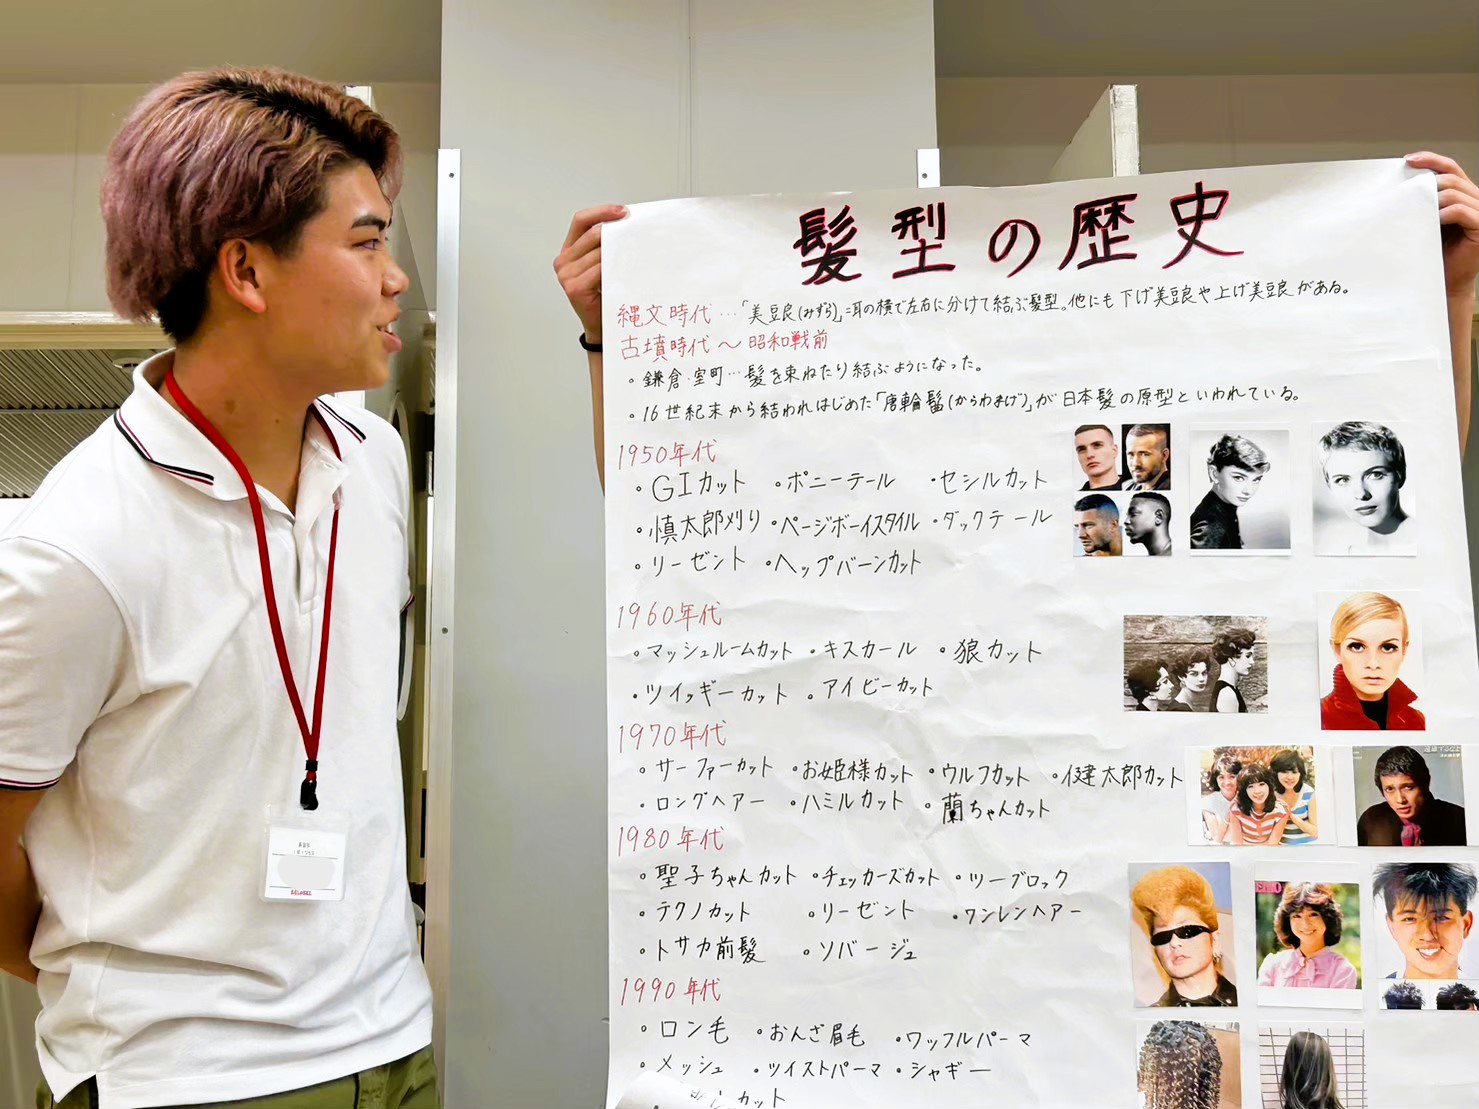 髪型の歴史
縄文時代…「美豆良(みずら)」=耳の横で左右に分けて結ぶ髪型。他にも下げ美豆良や上げ美豆良がある。
古墳時代〜昭和戦前
・鎌倉・室町…髪を束ねたり結ぶようになった。
・16世紀末から結われはじめた「唐輪髷(からわまげ)」が日本髪の原型といわれている。
1950年代
・GIカット ・ポニーテール ・セシルカット
・慎太郎刈り ・ページボーイスタイル ・ダックテール
・リーゼント ・ヘップバーンカット
1960年代
・マッシュルームカット ・キスカール ・狼カット
・ツイッギーカット ・アイビーカット
1970年代
・サーファーカット ・お姫様カット ・ウルフカット ・健太郎カット
・ロングヘアー ・ハミルカット ・蘭ちゃんカット
1980年代
・聖子ちゃんカット ・チェッカーズカット ・ツーブロック
・テクノカット ・リーゼント ・ワンレンヘアー
・トサカ前髪 ・ソバージュ
1990年代
・ロン毛 ・おんざ眉毛 ・ワッフルパーマ
・メッシュ ・ツイストパーマ ・シャギー
カット